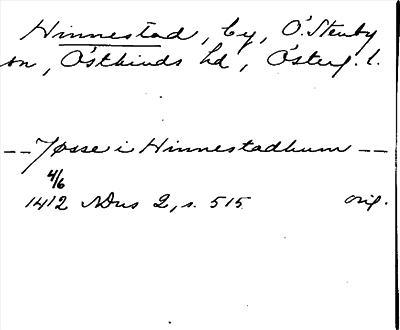 Hinnestad, by, Ö. Stenby
sn, Östkinds hd, Österg. l.
-- Jösse i Hinnestadhum --
4/6
1412 NDns 2, s. 515 orig.